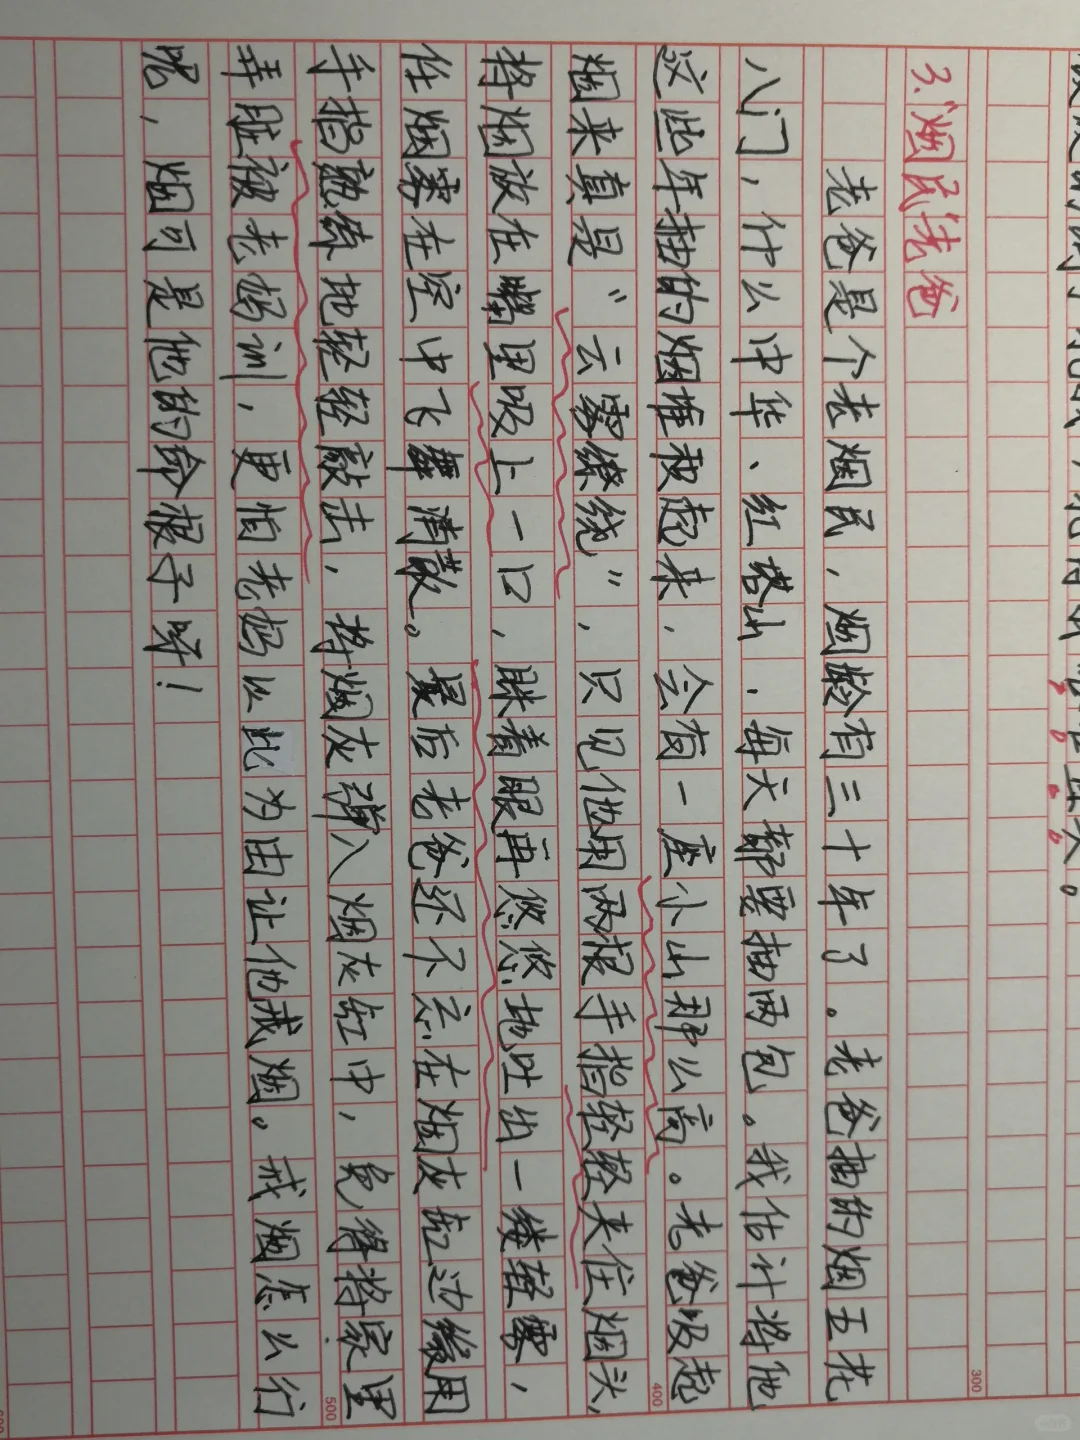 3.“烟民”老爸
老爸是个老烟民，烟龄有三十年了。老爸抽的烟五花
八门，什么中华、红塔山．每天都要抽两包。我估计将他
这些年抽的烟堆积起来，会有一座小山那么高。老爸吸起
烟来真是“云雾缭绕”，只见他用两根手指轻轻夹住烟头，
将烟放在嘴里吸上一口，眯着眼再悠悠地吐出一缕轻雾，
任烟雾在空中飞舞消散。最后老爸还不忘在烟灰缸边缘用
手指熟练地轻轻敲击，将烟灰弹入烟灰缸中，免得将家里
弄脏被老妈训，更怕老妈以此为由让他戒烟。戒烟怎么行
呢，烟可是他的命根子呀！
300
400
500